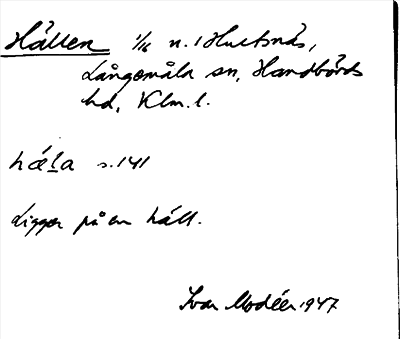 Hällen 1/16 n. i Hultsnäs,
Långemåla sn, Handbörds
hd, Klm. l.
hǽḷa s. 141
Ligger på en häll.
Ivar Modéer 1947